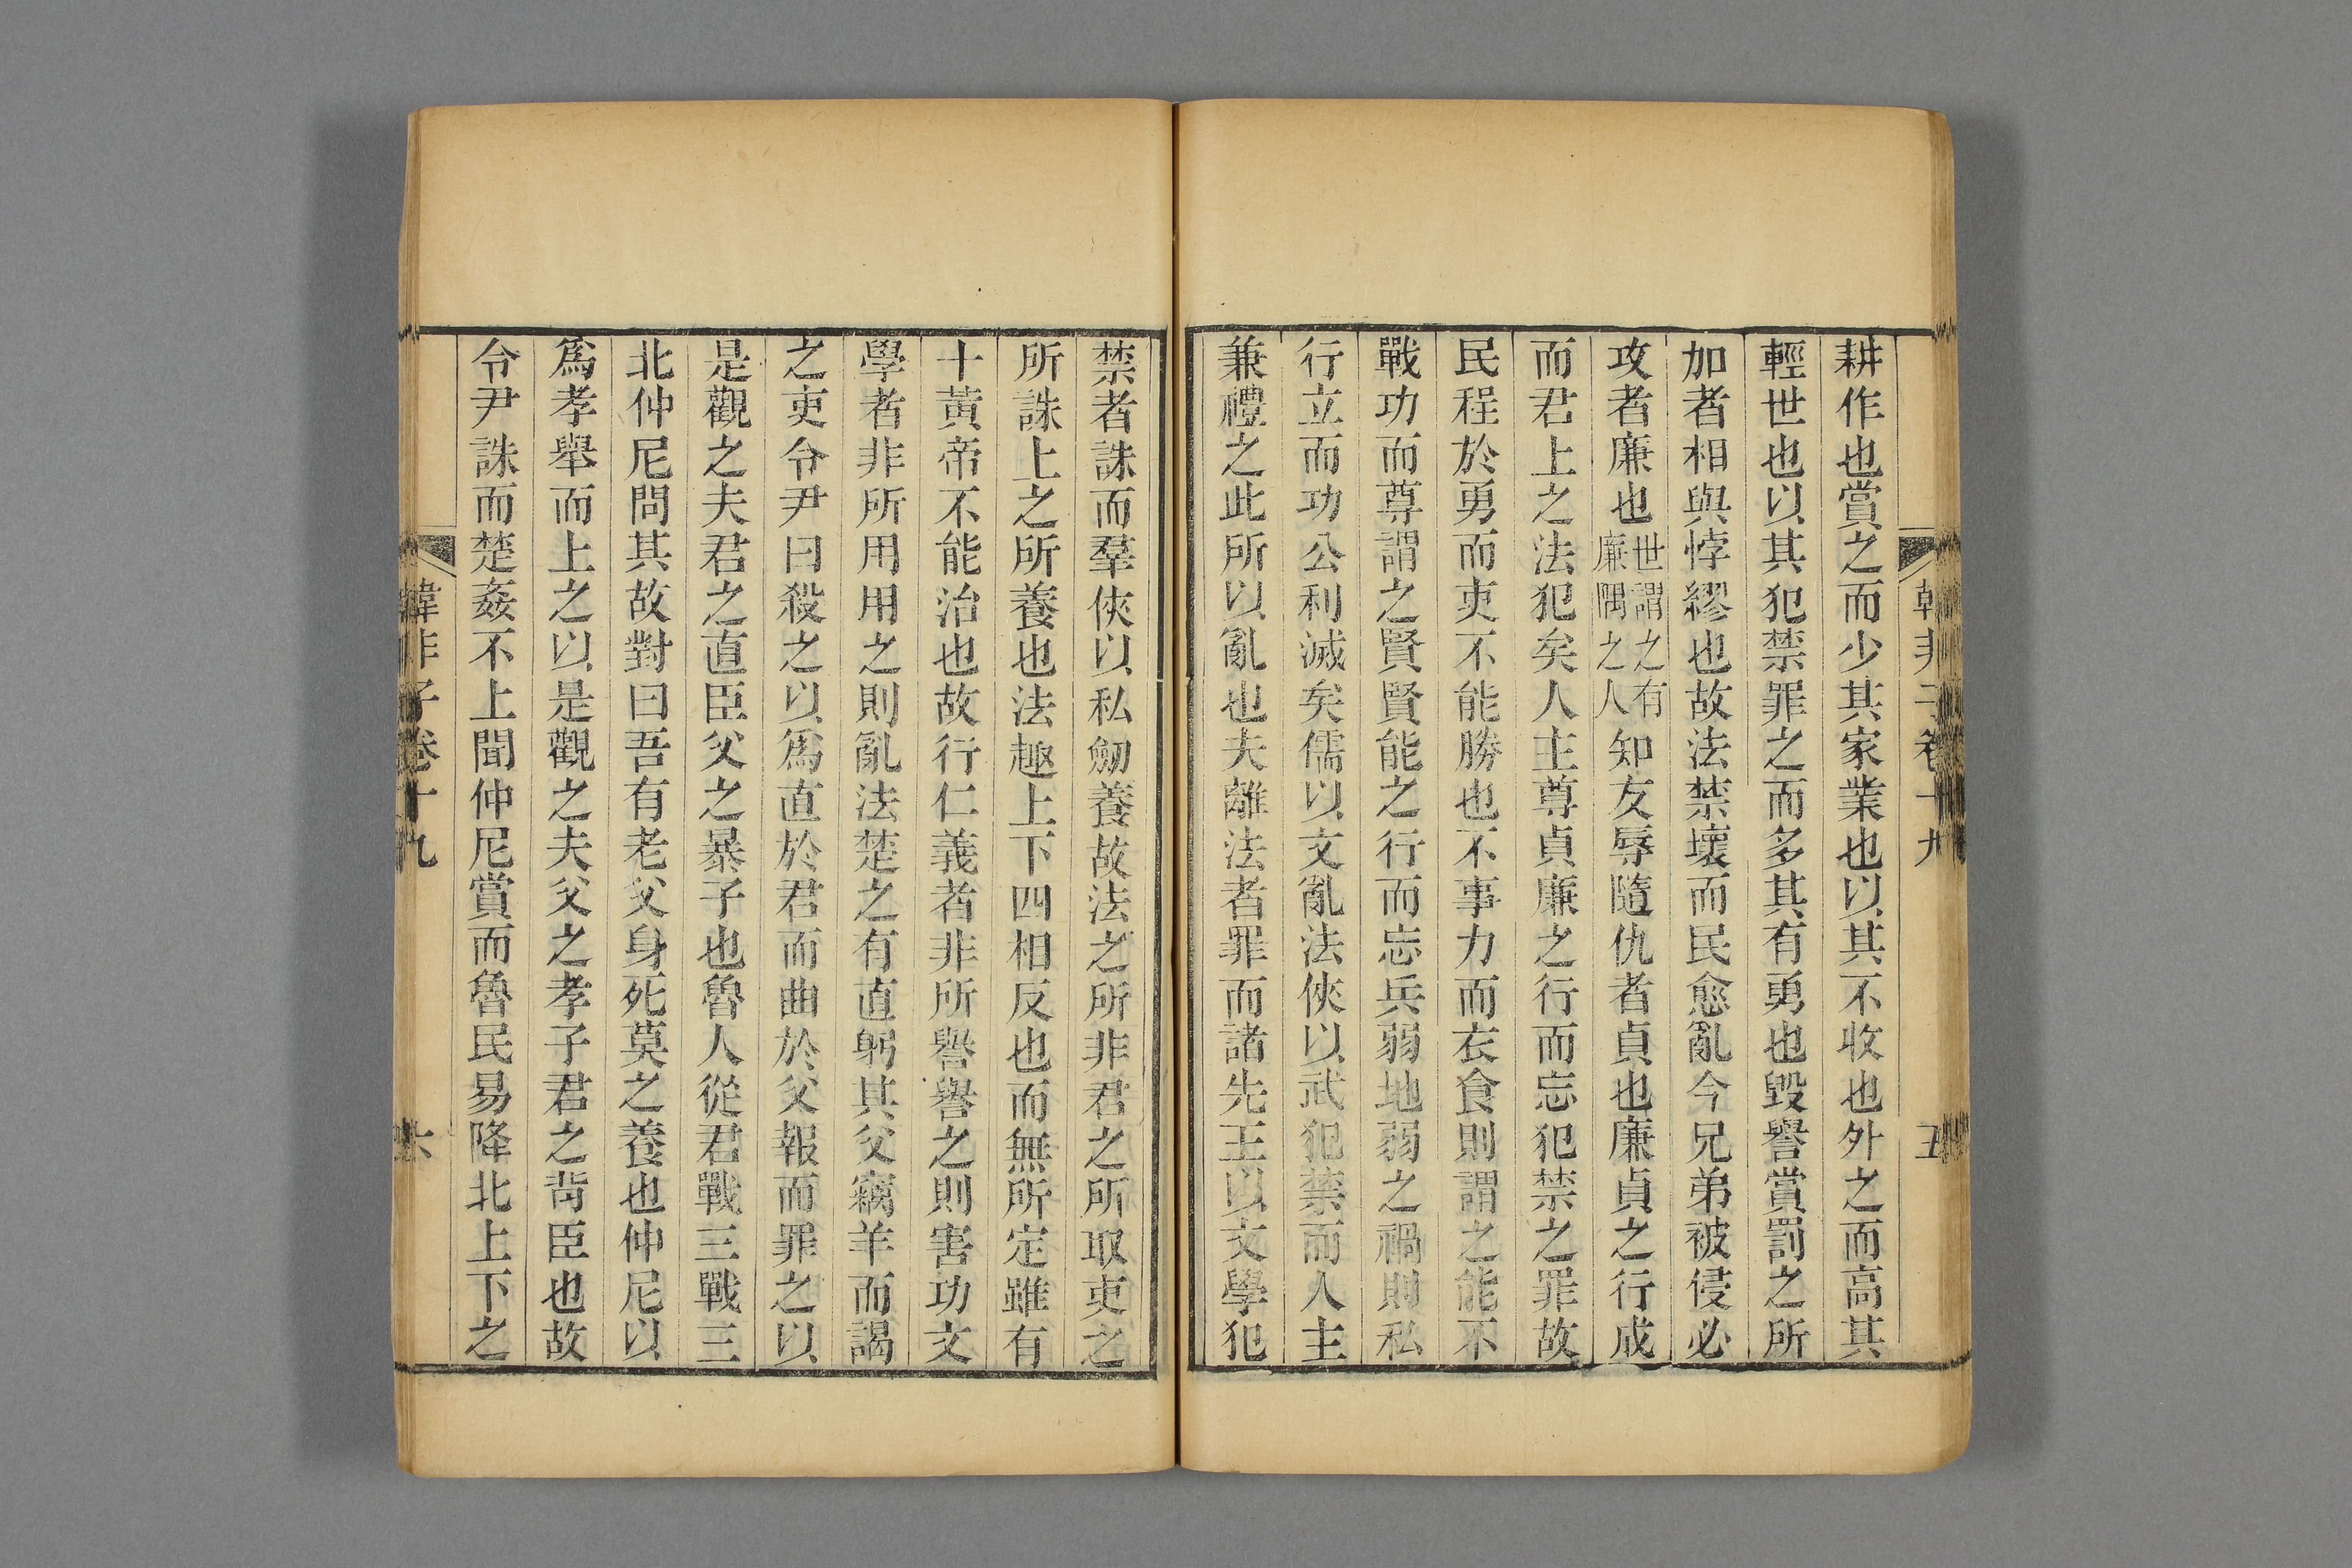 韓非子卷十九 五
耕作也賞之而少其家業也以其不收也外之而高其
輕世也以其犯禁罪之而多其有勇也毀譽賞罰之所
加者相與悖繆也故法禁壞而民愈亂今兄弟被侵必
攻者廉也世謂之有廉隅之人知友辱隨仇者貞也廉貞之行成
而君上之法犯矣人主尊貞廉之行而忘犯禁之罪故
民程於勇而吏不能勝也不事力而衣食則謂之能不
戰功而尊謂之賢賢能之行而忘兵弱地弱之禍則私
行立而功公利滅矣儒以文亂法俠以武犯禁而人主
兼禮之此所以亂也夫離法者罪而諸先王以文學犯
禁者誅而羣俠以私劒養故法之所非君之所取吏之
所誅上之所養也法趣上下四相反也而無所定雖有
十黃帝不能治也故行仁義者非所譽譽之則害功文
學者非所用用之則亂法楚之有直躬其父竊羊而謁
之吏令尹曰殺之以爲直於君而曲於父報而罪之以
是觀之夫君之直臣父之暴子也魯人從君戰三戰三
北仲尼問其故對曰吾有老父身死莫之養也仲尼以
爲孝舉而上之以是觀之夫父之孝子君之背臣也故
令尹誅而楚姦不上聞仲尼賞而魯民易降北上下之
韓非子卷十九 六